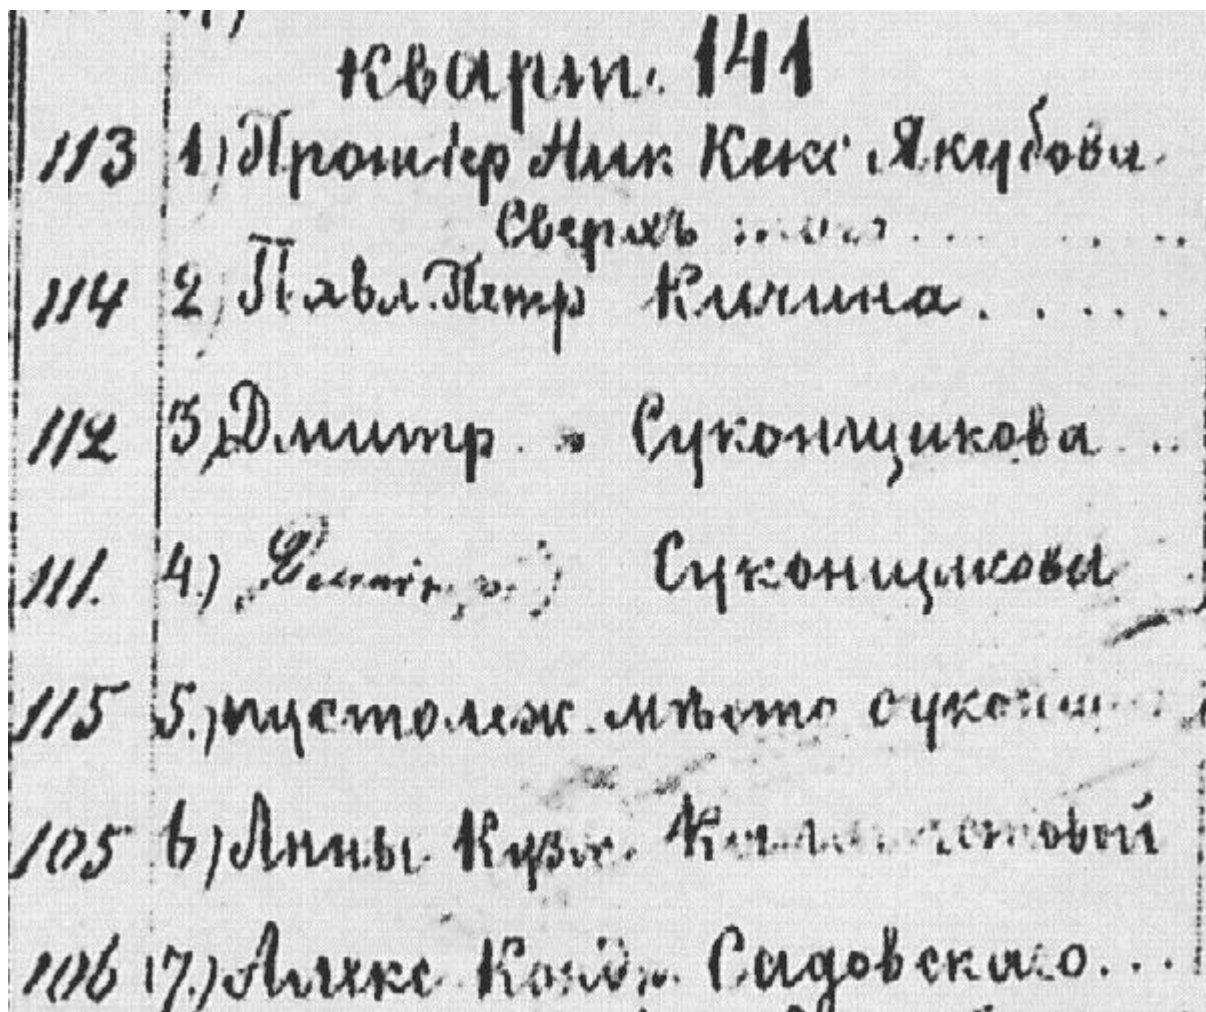 кварт. 141
113 1) Протіер Ник Кекс Якубова
Сверхъ того . . . . . .
114 2) Павл. Петр Кичина . . . . .
112 3) Дмитр. » Суконщикова . .
111. 4.) Суконщикова
115 5.) пустолеж. мѣсто сукон
105 6) Анны Кузм.
106 17.) Алекс Конд. Садовскаго . . .